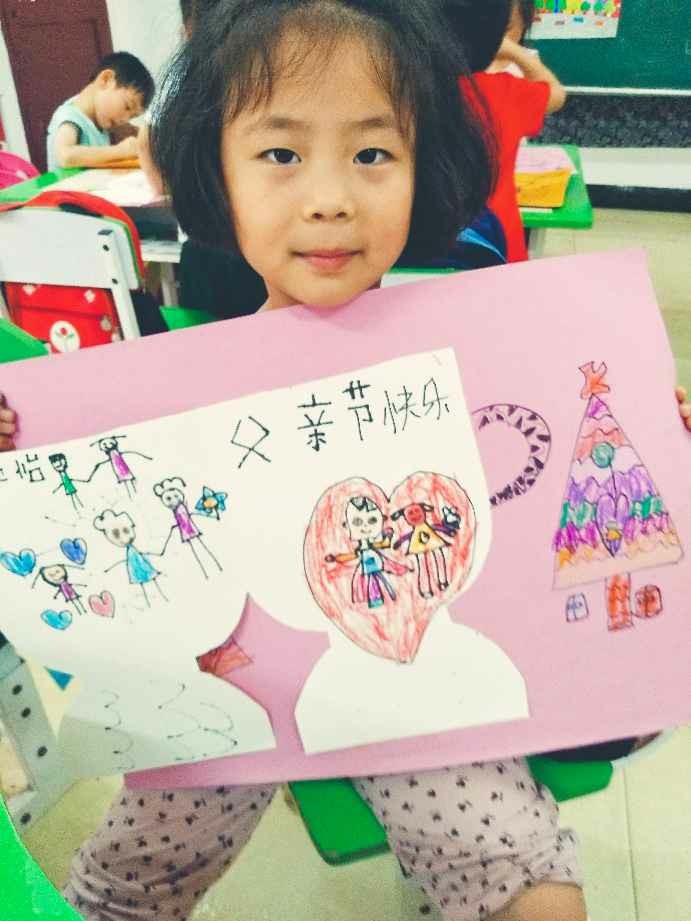 父亲节快乐
怡